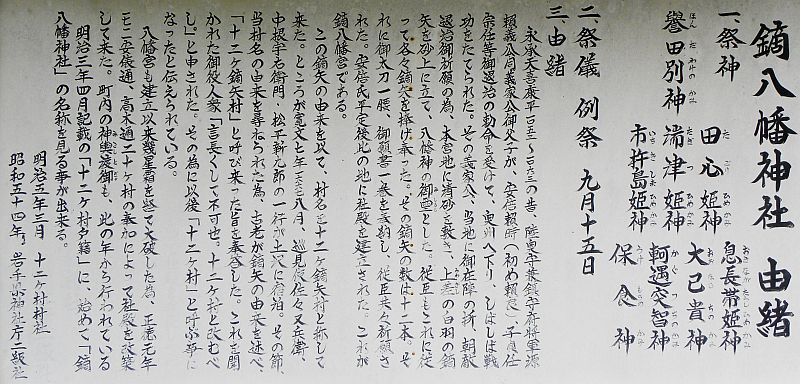 鏑八幡神社 由緒
一、祭神
誉田別神 ほんだわけのかみ
田心姫神
湍津姫神
市杵島姫神
息長帯姫神
大己貴神
軻遇突智神
保食神
二、祭儀 例祭 九月十五日
三、由緒
頼義公同義家公御父子が、安倍頼時(初め頼良)子貞任
宗任等御退治の勅命を受けて、奥州へ下り、しばしば戦
功をたてられた。その義家公、当地に御在陣の折、朝敵
退治御祈願の為、本宮地に清砂を敷き、上差の白羽の鏑
矢を砂上に立て、八幡神の御霊とした。従臣もこれに従
って各々鏑矢を捧げ奉った。その鏑矢の数は十二本。そ
れに御太刀一腰、御願書一巻を奉納し、従臣共々祈願さ
れた。安倍氏平定後此の地に社殿を建立された。これが
鏑八幡宮である。
この鏑矢の由来を以て、村名を十二ヶ鏑矢村と称して
来た。ところが寛文七年八月、巡見使佐々又兵衛、
中根宇右衛門、松平新九郎の一行が土沢に宿泊。その節、
当村名の由来を尋ねられた為、古老が鏑矢の由来を述べ、
「十二ヶ鏑矢村」と呼び来った旨を奉答した。これを聞
かれた御役人衆「言長くして不可也。十二ヶ村と改むべ
し」と申された。その為に以後「十二ヶ村」と呼ぶ事に
なったと伝えられている。
八幡宮も建立以来幾星霜を経て大破した為、正徳元年
して来た。町内の神輿渡御も、此の年から行われている
明治三年四月記載の「十二ヶ村戸籍」に、始めて「鏑
八幡神社」の名称を見る事が出来る。
明治五年三月 十二ヶ村村社
昭和五十四年、岩手県神社庁二級社